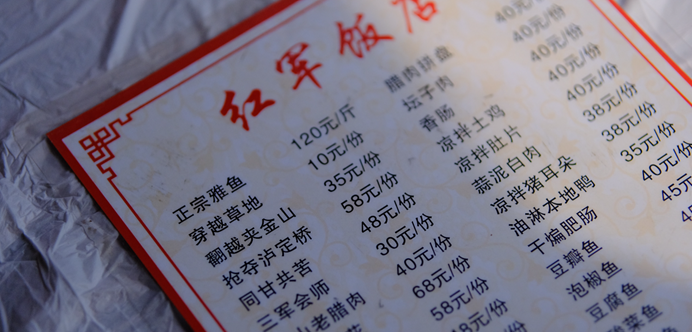 红军饭店
正宗雅鱼 120元/斤
穿越草地 10元/份
翻越夹金山 35元/份
抢夺泸定桥 58元/份
同甘共苦 48元/份
三军会师 30元/份
山老腊肉 40元/份
68元/份
58元/份
8元/份
腊肉拼盘 40元/份
坛子肉 40元/份
香肠 40元/份
凉拌土鸡 40元/份
凉拌肚片 40元/份
蒜泥白肉 38元/份
凉拌猪耳朵 38元/份
油淋本地鸭 35元/份
干煸肥肠 40元/份
豆瓣鱼 45元
泡椒鱼
豆腐鱼
菜鱼